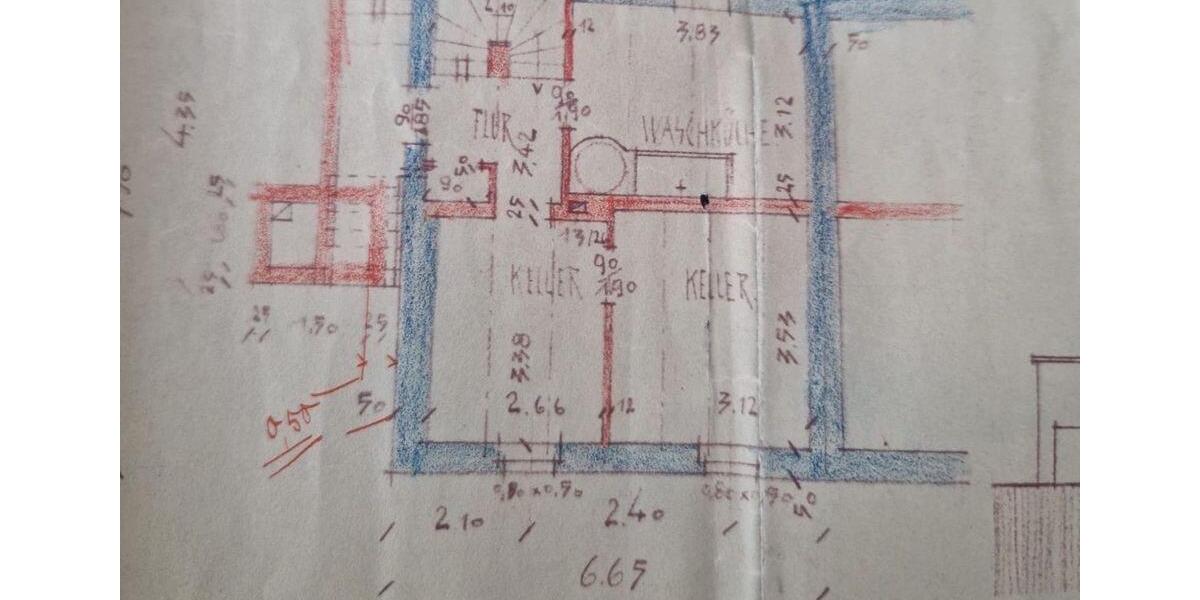 2,10
12
3.83
50
90
1,90
90
1,85
FLUR
WASCHKÜCHE
3.12
4.35
3.42
50
90
25
25
25
25
13/26
KELLER
90
1,90
KELLER
25
1,50
25
3.38
3.53
0,50
50
2.66
12
3.12
0,80 x 0,50
0,80 x 0,50
50
2.10
2.40
6.65